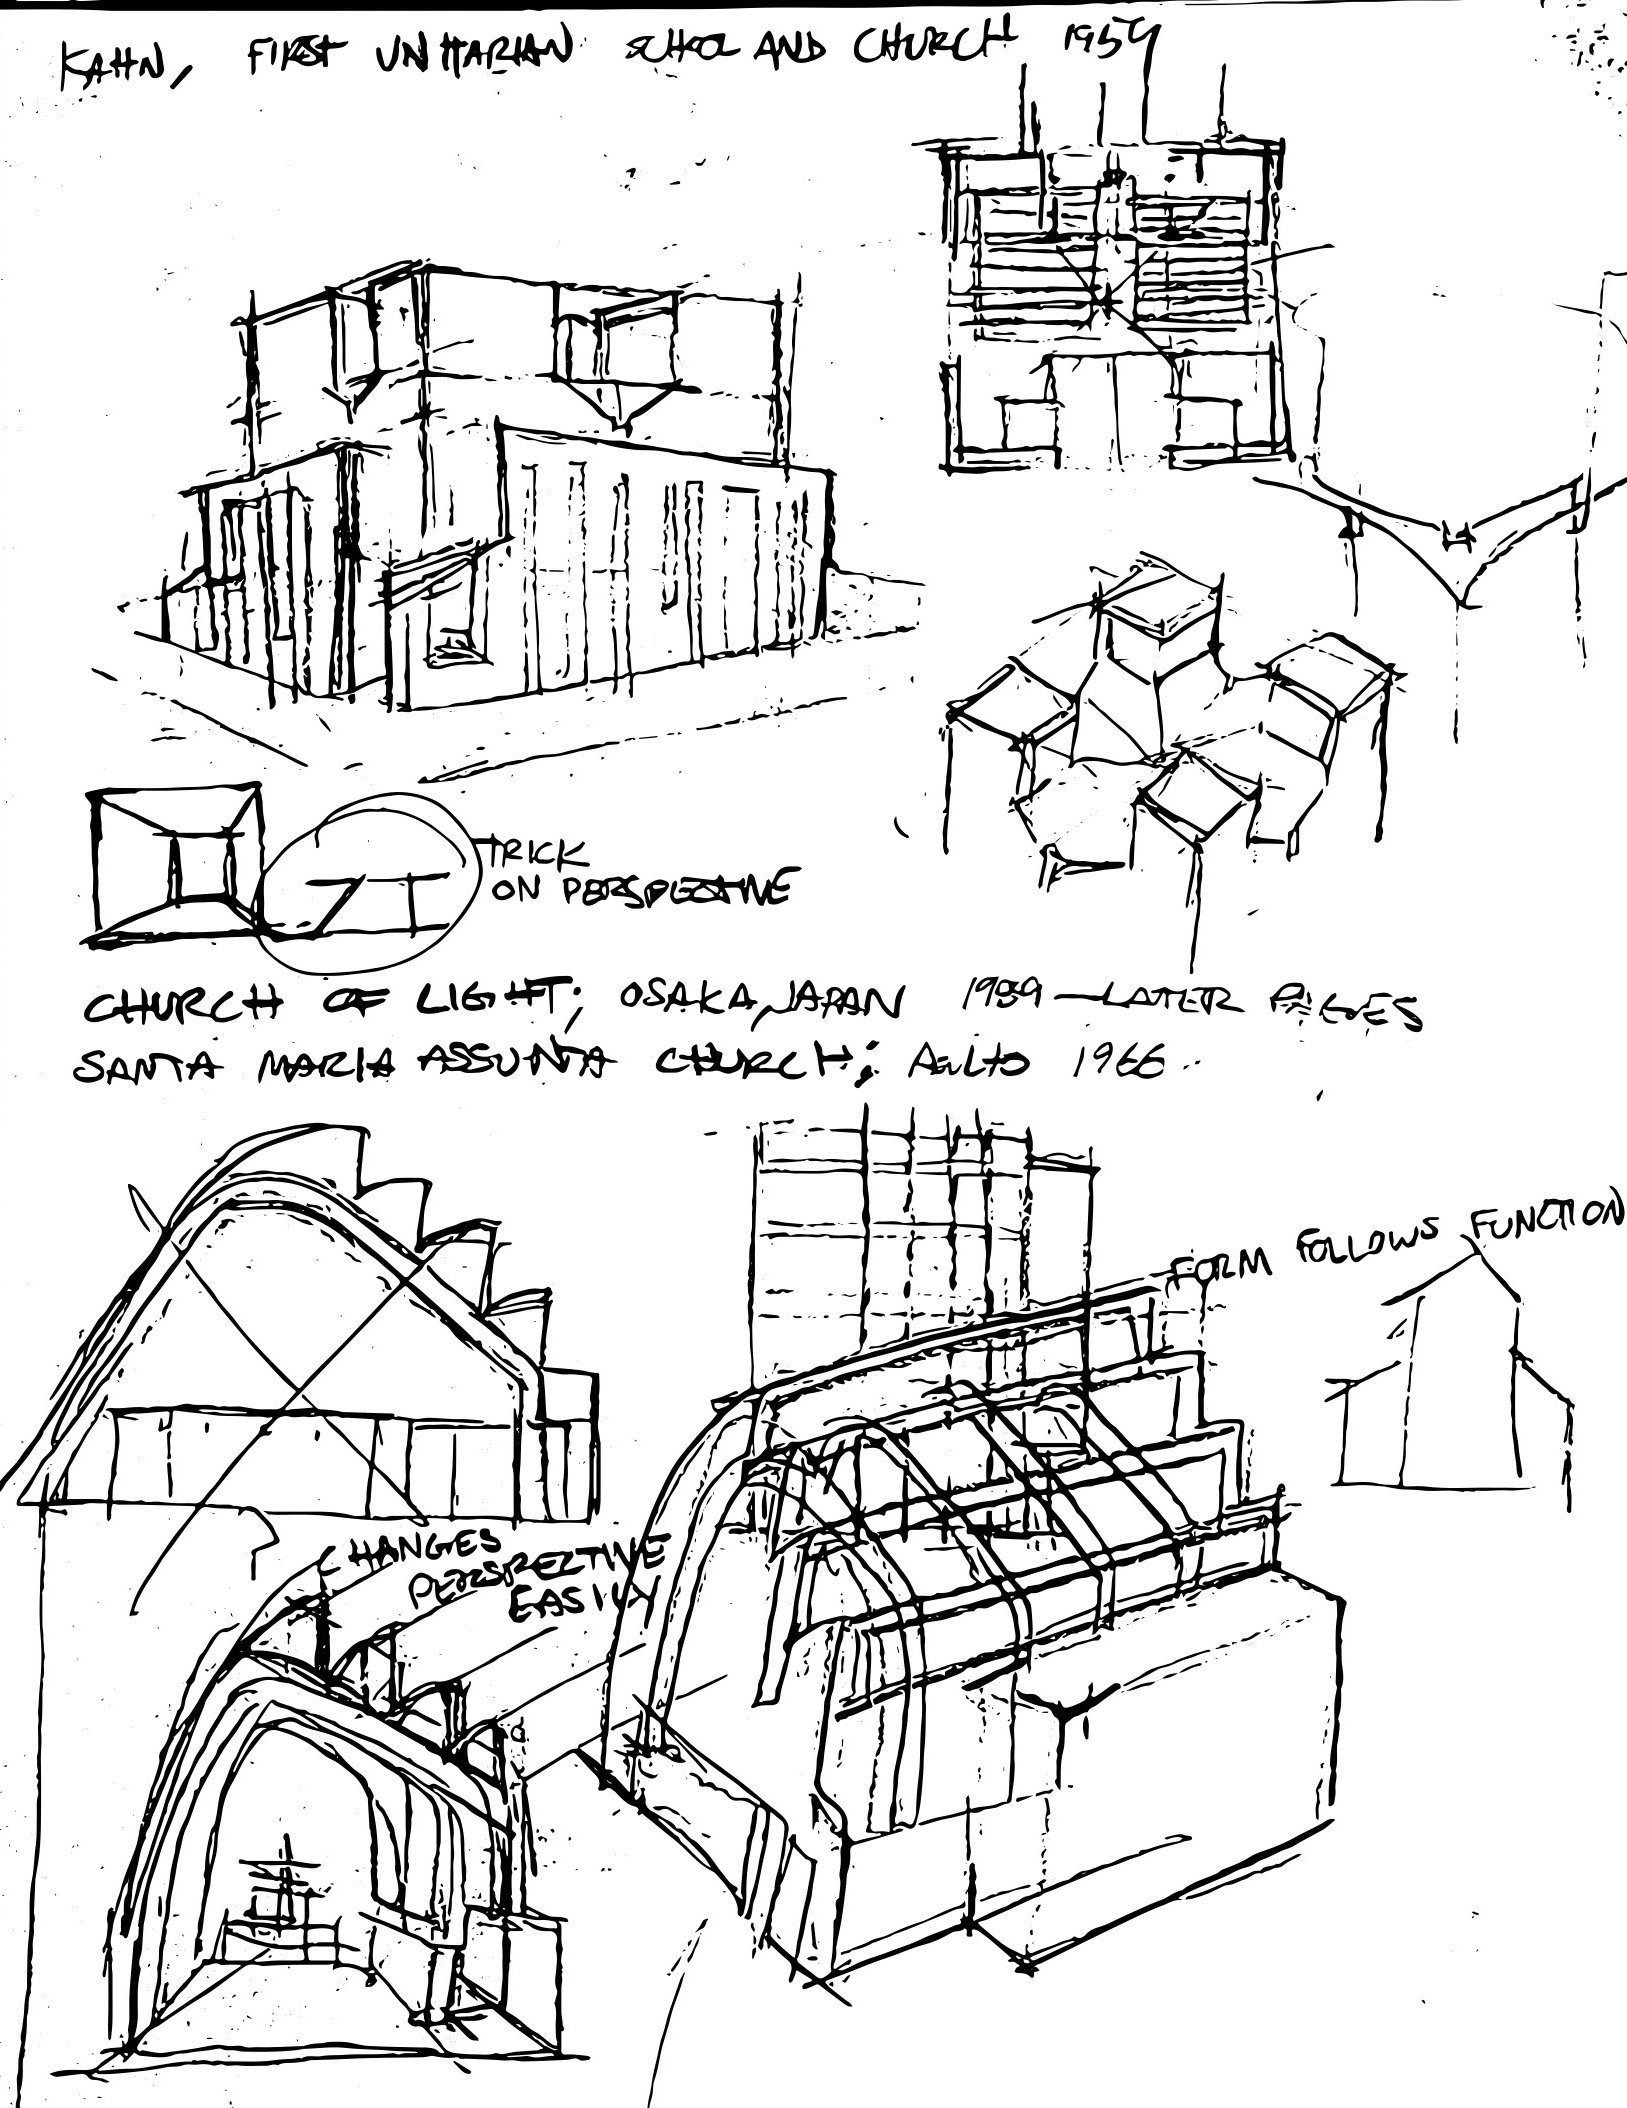 KAHN, FIRST UNITARIAN SCHOOL AND CHURCH 1959
TRICK
ON PERSPECTIVE
CHURCH OF LIGHT; OSAKA, JAPAN 1989 — LATER PIECES
SANTA MARIA ASSUNTA CHURCH; AALTO 1966
FORM FOLLOWS FUNCTION
CHANGES
PERSPECTIVE
EASILY